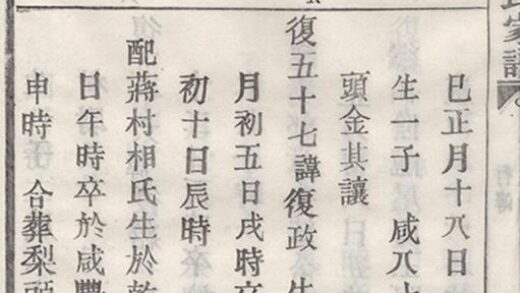 氏家譜
巳正月十八日
生一子 咸八十
頭金其讓
復五十七諱復政 生
月初五日戌時卒
初十日辰時
配蔣村相氏生於乾
日午時卒於咸豐
申時 合葬梨頭